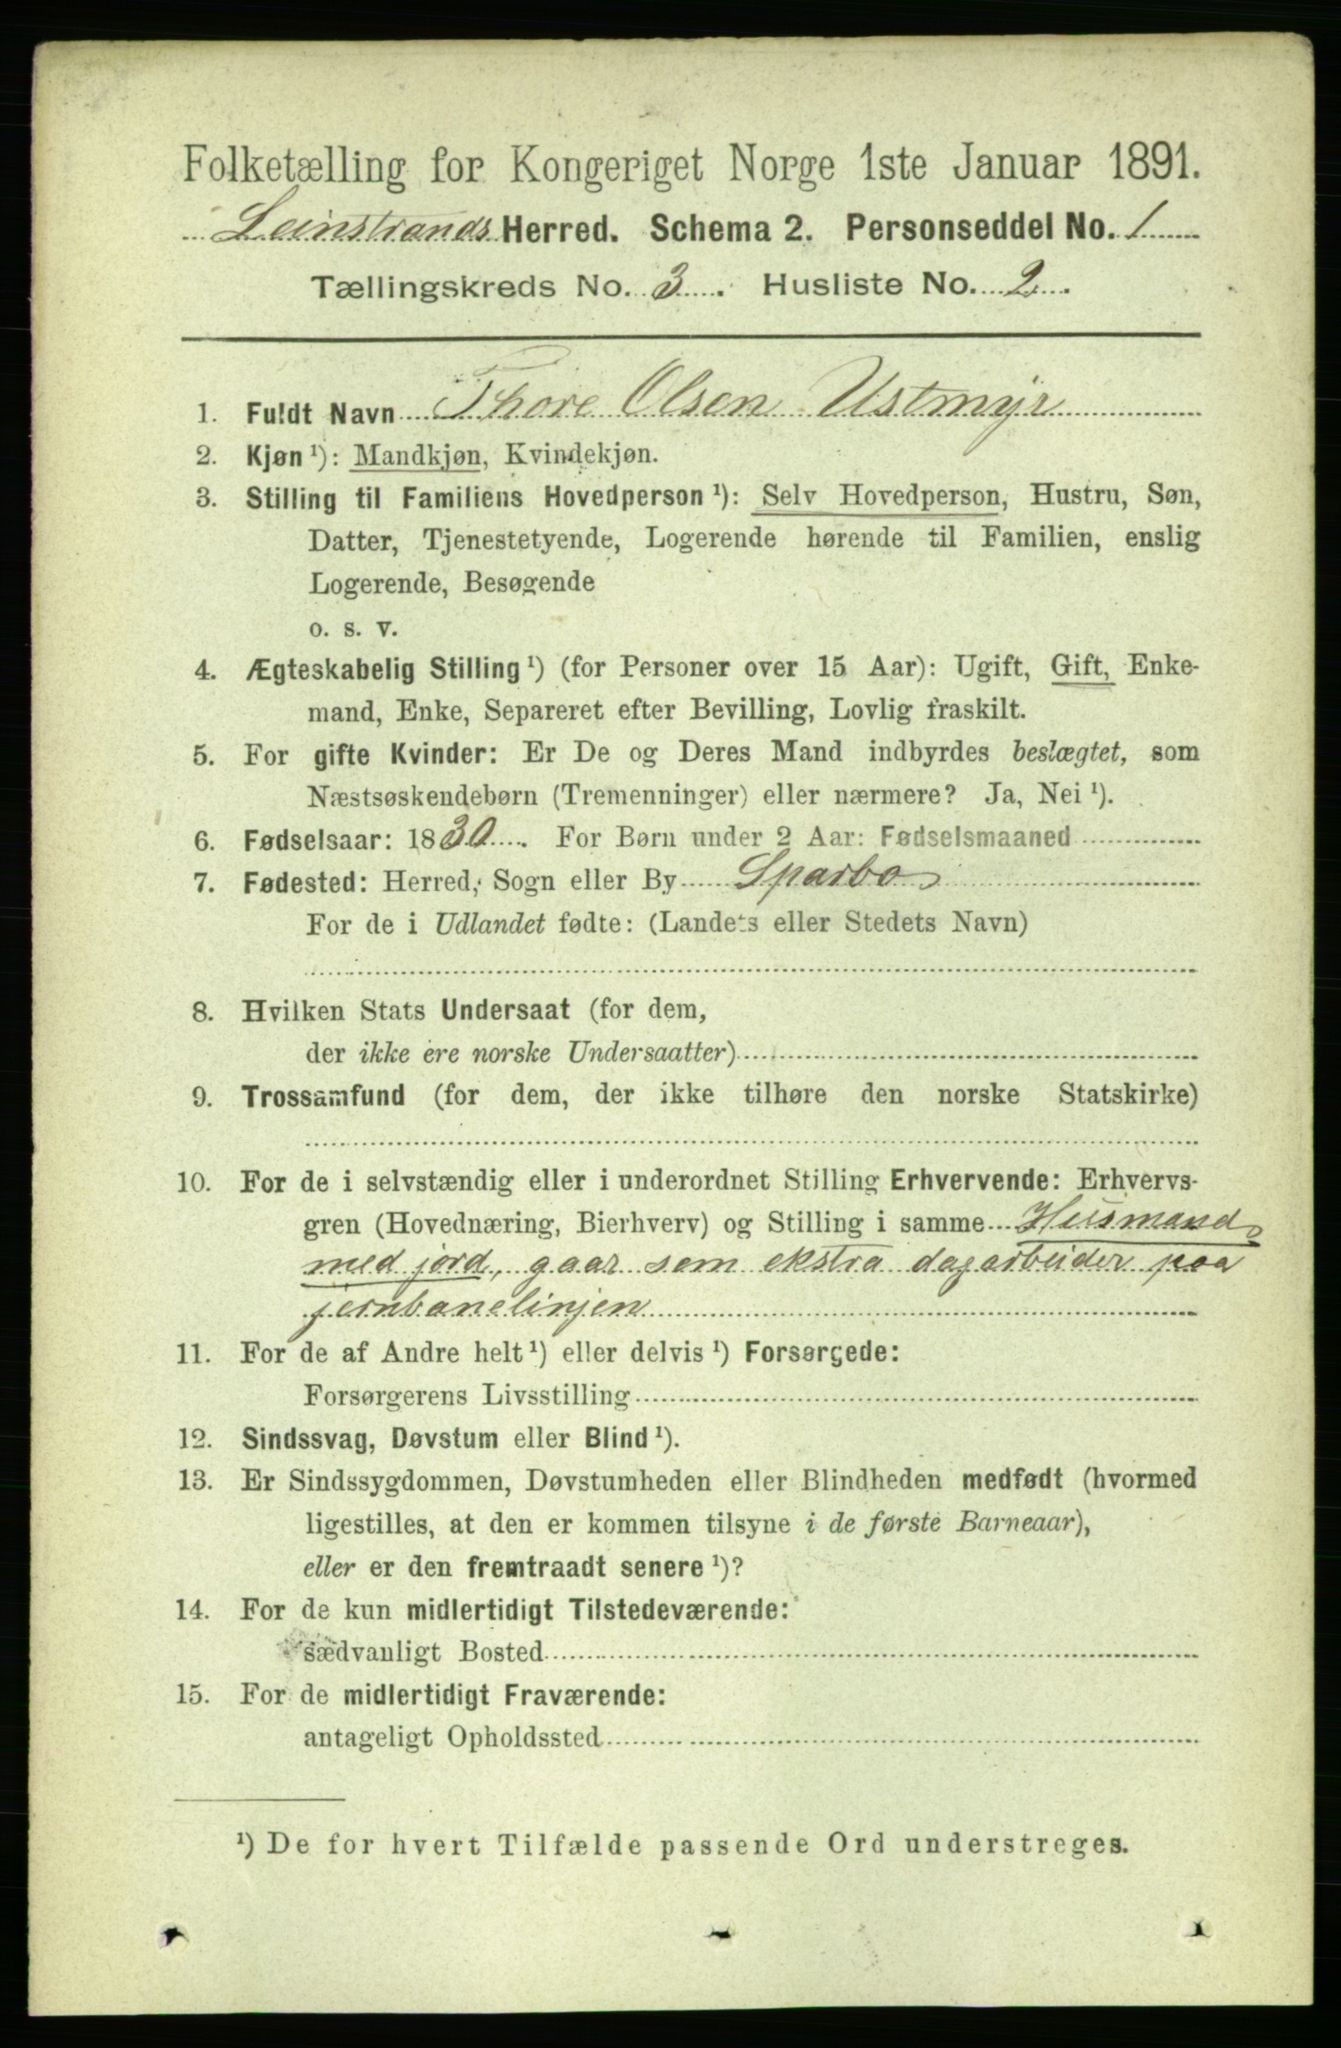 Folketælling for Kongeriget Norge 1ste Januar 1891.
Leinstrands Herred. Schema 2. Personseddel No. 1
Tællingskreds No. 3. Husliste No. 2.
1. Fuldt Navn Thore Olsen Ustmyr
2. Kjøn ¹): Mandkjøn, Kvindekjøn.
3. Stilling til Familiens Hovedperson ¹): Selv Hovedperson, Hustru, Søn,
Datter, Tjenestetyende, Logerende hørende til Familien, enslig
Logerende, Besøgende
o. s. v.
4. Ægteskabelig Stilling ¹) (for Personer over 15 Aar): Ugift, Gift, Enke-
mand, Enke, Separeret efter Bevilling, Lovlig fraskilt.
5. For gifte Kvinder: Er De og Deres Mand indbyrdes beslægtet, som
Næstsøskendebørn (Tremenninger) eller nærmere? Ja, Nei ¹).
6. Fødselsaar: 1830. For Børn under 2 Aar: Fødselsmaaned
7. Fødested: Herred, Sogn eller By Sparbo
For de i Udlandet fødte: (Landets eller Stedets Navn)
8. Hvilken Stats Undersaat (for dem,
der ikke ere norske Undersaatter)
9. Trossamfund (for dem, der ikke tilhøre den norske Statskirke)
10. For de i selvstændig eller i underordnet Stilling Erhvervende: Erhvervs-
gren (Hovednæring, Bierhverv) og Stilling i samme Husmand
med jord, gaar som ekstra dagarbeider paa
jernbanelinjen
11. For de af Andre helt ¹) eller delvis ¹) Forsørgede:
Forsørgerens Livsstilling
12. Sindssvag, Døvstum eller Blind ¹).
13. Er Sindssygdommen, Døvstumheden eller Blindheden medfødt (hvormed
ligestilles, at den er kommen tilsyne i de første Barneaar),
eller er den fremtraadt senere ¹)?
14. For de kun midlertidigt Tilstedeværende:
sædvanligt Bosted
15. For de midlertidigt Fraværende:
antageligt Opholdssted
¹) De for hvert Tilfælde passende Ord understreges.